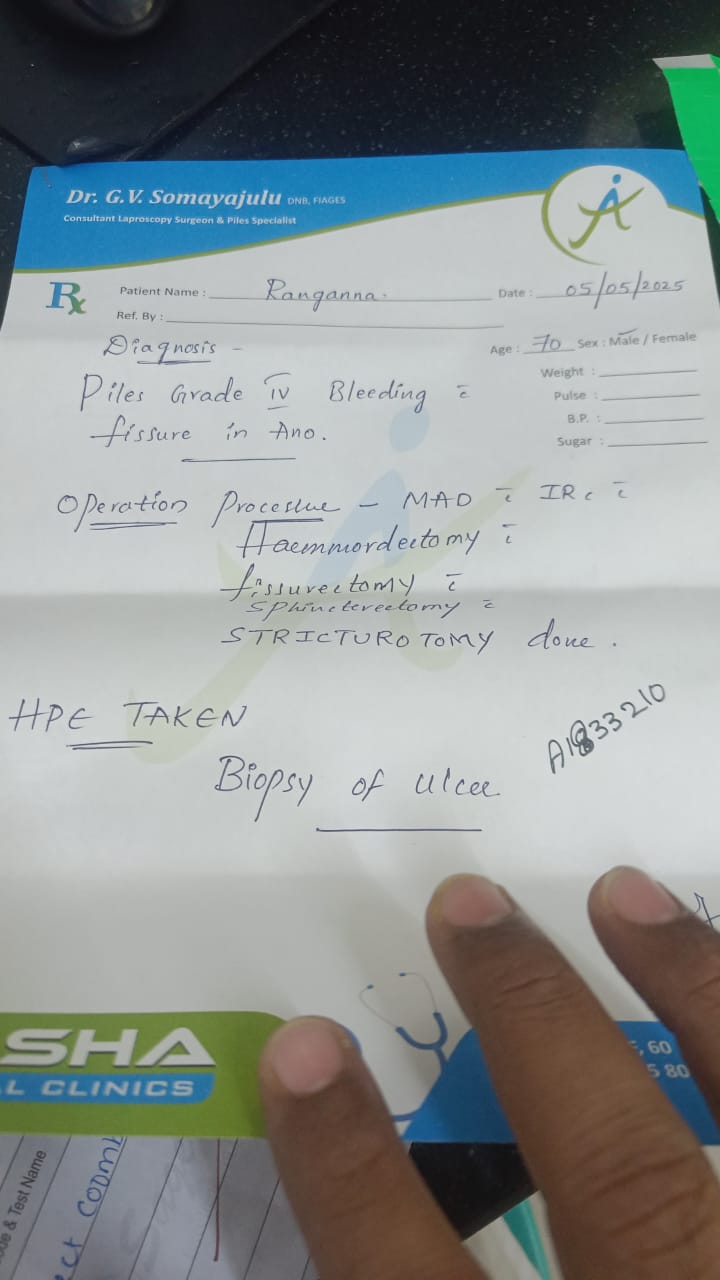 Dr. G.V. Somayajulu DNB, FIAGES
Consultant Laproscopy Surgeon & Piles Specialist
Rx
Patient Name : Ranganna. Date : 05/05/2025
Ref. By :
Age : 70 Sex : Male / Female
Weight :
Pulse :
B.P. :
Sugar :
Diagnosis –
Piles Grade IV Bleeding c̄
fissure in Ano.
Operation Proceslue – MAD c̄ IRC c̄
Haemmordectomy c̄
fissurectomy c̄
Sphincterectomy c̄
STRICTUROTOMY done.
HPE TAKEN
A1833210
Biopsy of ulcer
SHA
L CLINICS
, 60
5 80
ue & Test Name